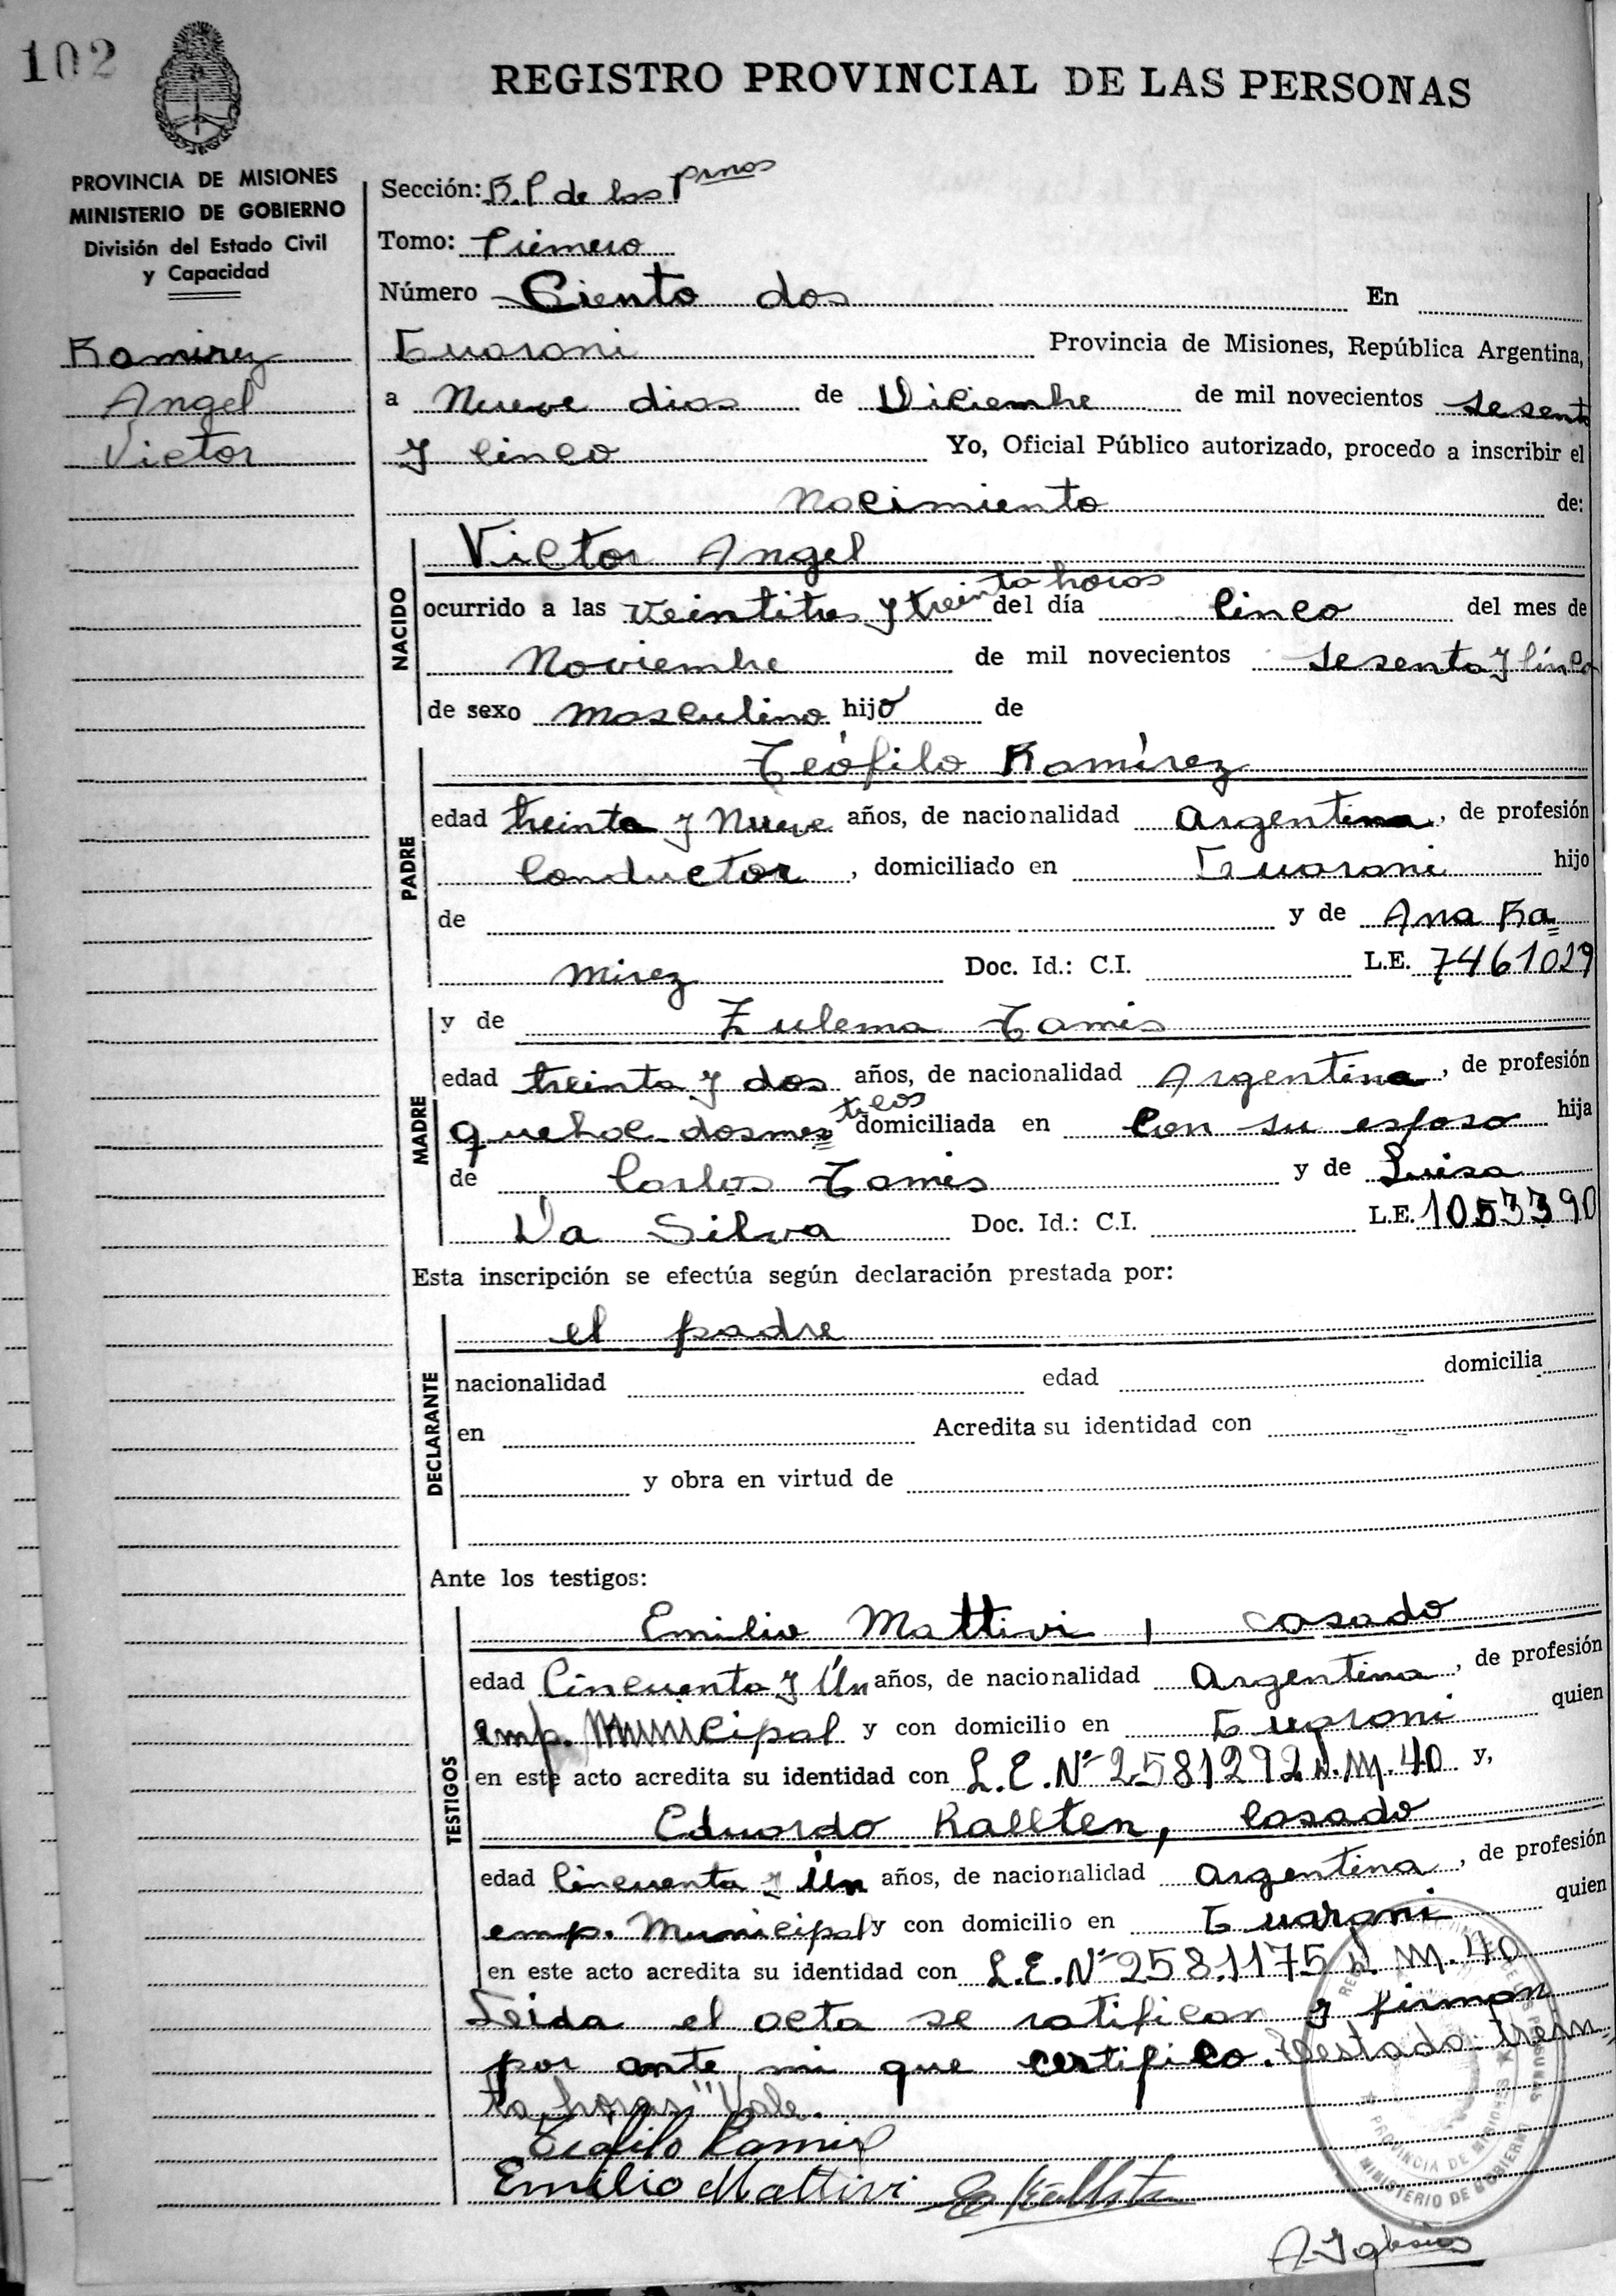 102
REGISTRO PROVINCIAL DE LAS PERSONAS
PROVINCIA DE MISIONES
MINISTERIO DE GOBIERNO
División del Estado Civil
y Capacidad
Ramirez
Angel
Victor
Sección: R.P de las Pmas
Tomo: Primero
Número Ciento dos En
Guarani Provincia de Misiones, República Argentina,
a Nueve dias de Diciembre de mil novecientos sesent
y cinco Yo, Oficial Público autorizado, procedo a inscribir el
Nacimiento de:
NACIDO
Victor Angel
ocurrido a las veintitres y treinta horas del día cinco del mes de
Noviembre de mil novecientos sesenta y cinco
de sexo masculino hijo de
PADRE
Teófilo Ramírez
edad treinta y Nueve años, de nacionalidad Argentina, de profesión
Conductor, domiciliado en Guarani hijo
de y de Ana Ra=
mirez Doc. Id.: C.I. L.E. 7461029
MADRE
y de Zulema Tamis
edad treinta y dos años, de nacionalidad Argentina, de profesión
quehac. domes=ticos domiciliada en Con su esposo hija
de Carlos Tamis y de Luisa
Da Silva Doc. Id.: C.I. L.E. 1053390
Esta inscripción se efectúa según declaración prestada por:
DECLARANTE
el padre
nacionalidad edad domicilia
en Acredita su identidad con
y obra en virtud de
Ante los testigos:
TESTIGOS
Emilio Mattivi, casado
edad Cincuenta y Un años, de nacionalidad Argentina, de profesión
emp. Municipal y con domicilio en Guarani quien
en este acto acredita su identidad con L.E.Nº 2581292 D.M.40 y,
Eduardo Kallten, casado
edad Cincuenta y Un años, de nacionalidad Argentina, de profesión
emp. Municipal y con domicilio en Guarani quien
en este acto acredita su identidad con L.E.Nº 2581175 D.M.40
Leida el acta se ratifican y firman
por ante mi que certifico. Testado: trein=
ta horas" Vale.
Teofilo Ramirez
Emilio Mattivi E Kallsten
A. Iglesias
PROVINCIA DE MISIONES
MINISTERIO DE GOBIERNO